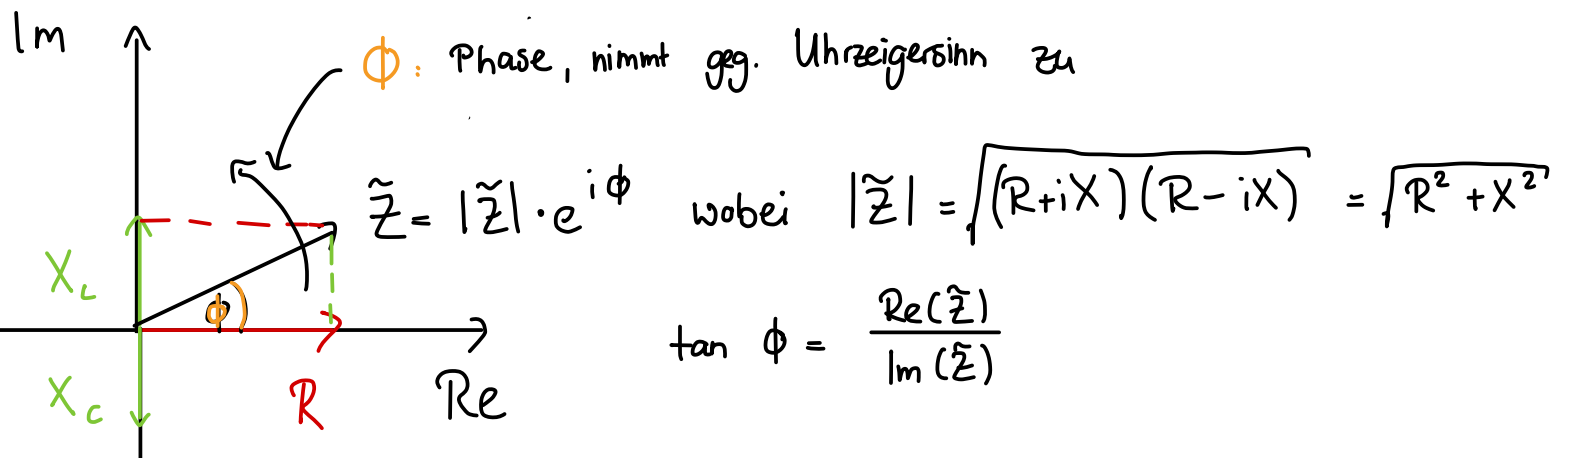 Im
ϕ: Phase, nimmt geg. Uhrzeigersinn zu
Z̃ = |Z̃| · e^{iϕ} wobei |Z̃| = √((R+iX)(R-iX)) = √(R² + X²)
X_L
ϕ
tan ϕ = Re(Z̃) / Im(Z̃)
X_C
R
Re